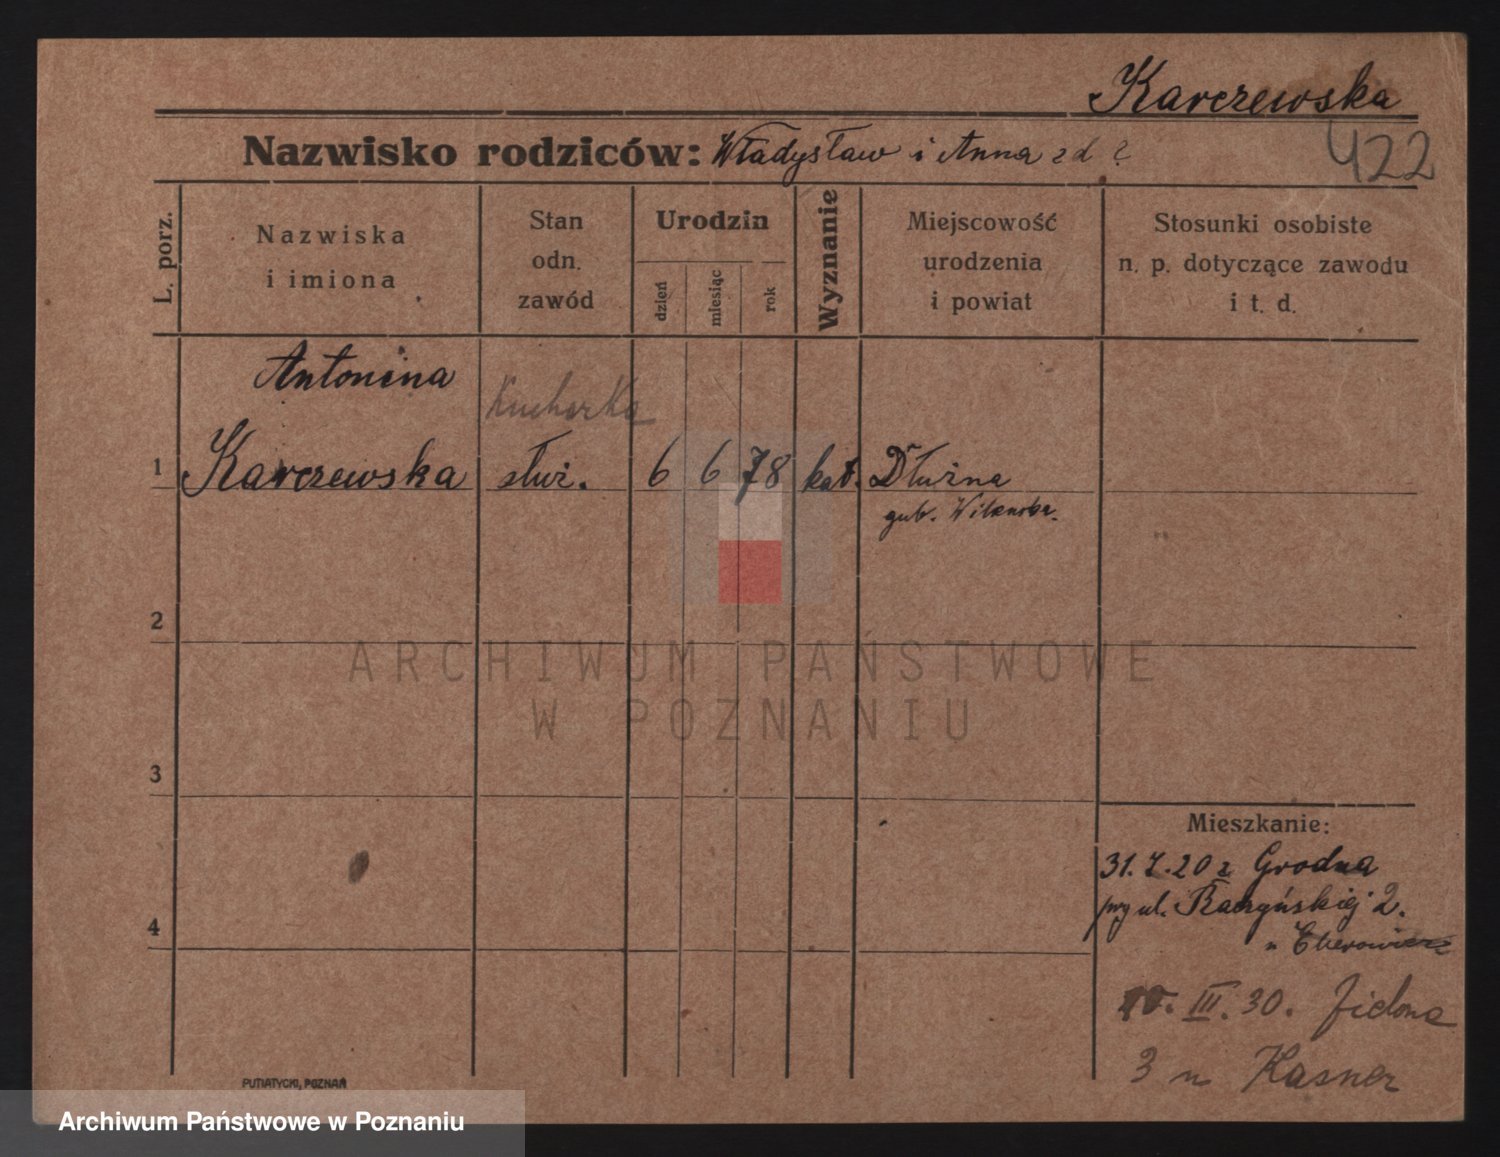 Karczewska
Nazwisko rodziców: Władysław i Anna zd ?
422
L. porz.
Nazwiska
i imiona
Stan
odn.
zawód
Urodzin
dzień
miesiąc
rok
Wyznanie
Miejscowość
urodzenia
i powiat
Stosunki osobiste
n. p. dotyczące zawodu
i t. d.
Antonina
Kucharka
1 Karczewska służ. 6 6 78 kat. Dłużna
gub. Wilenska.
2
ARCHIWUM PAŃSTWOWE
W POZNANIU
3
Mieszkanie:
31. 7. 20 z Grodna
przy ul. Raczyńskiej 2.
4
10. III. 30. Zielona
3 u Kasner
PUTIATYCKI, POZNAŃ
Archiwum Państwowe w Poznaniu